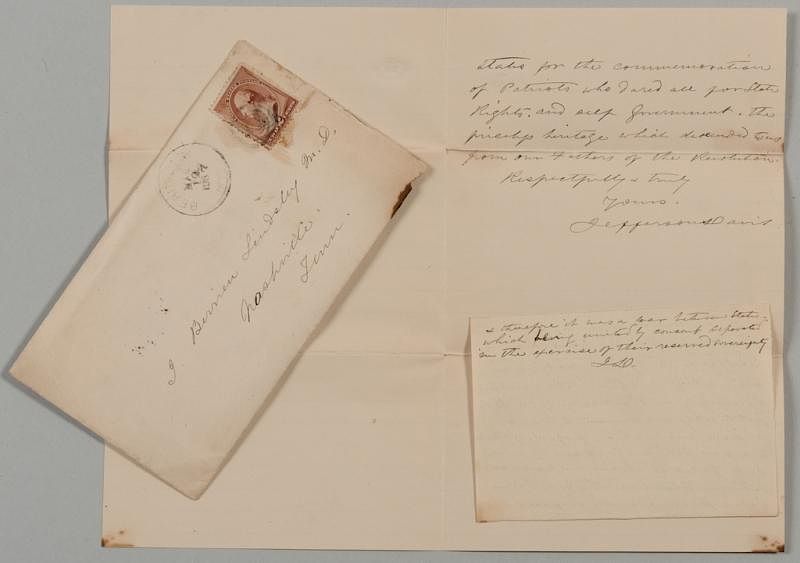 J. Berrien Lindsley M.D.
Nashville.
Tenn.
States for the commemoration
of Patriots who dared all for State
Rights, and self Government. the
priceless heritage which descended to us
from our Fathers of the Revolution.
Respectfully & truly
Yours.
Jefferson Davis
& therefore it was a war between States,
which being united by consent separated
in the exercise of their reserved sovereignty
J.D.